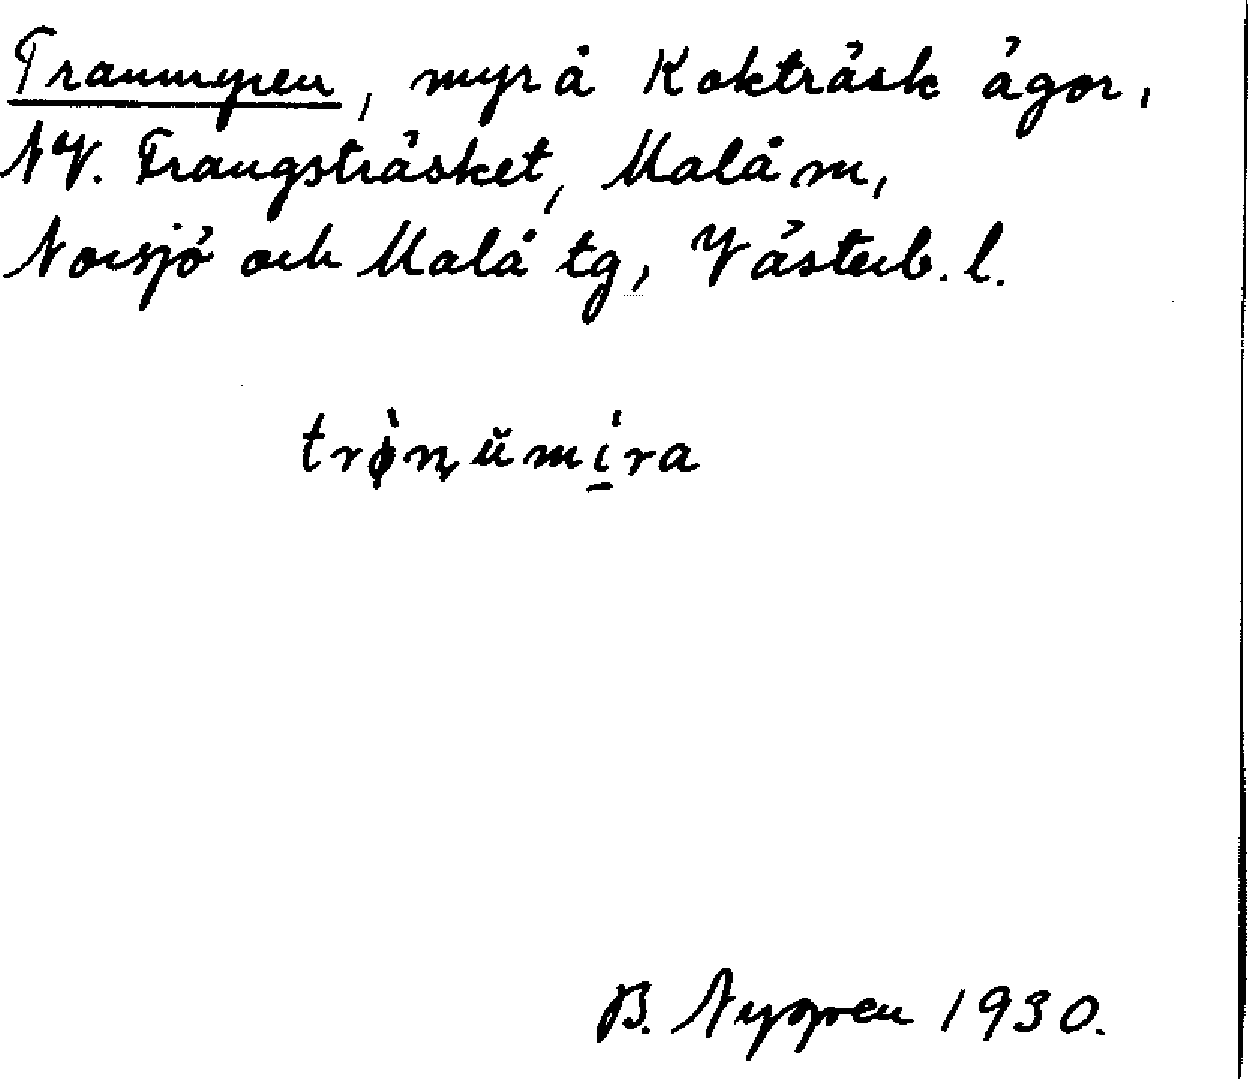 Tranmyren, myr å Kokträsk ägor,
NV. Trångsträsket, Malå sn,
Norsjö och Malå tg, Västerb. l.
trø̀nu̇̆mí̱ra
B. Nygren 1930.